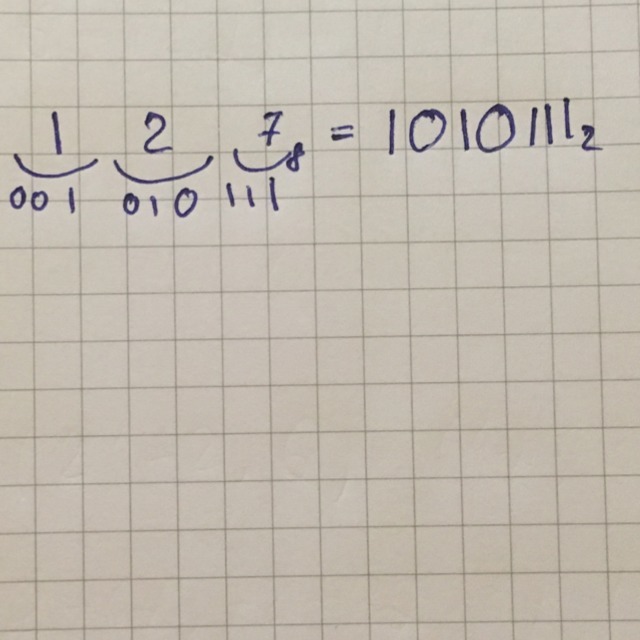 1 2 7₈ = 1010111₂
001 010 111